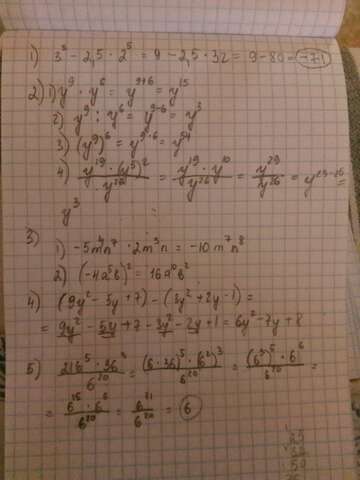 1) 3² - 2,5 · 2⁵ = 9 - 2,5 · 32 = 9 - 80 = -71
2) 1) y⁹ · y⁶ = y⁹⁺⁶ = y¹⁵
2) y⁹ : y⁶ = y⁹⁻⁶ = y³
3) (y⁹)⁶ = y⁹·⁶ = y⁵⁴
4) y¹⁹ · (y⁵)² / y²⁶ = y¹⁹ · y¹⁰ / y²⁶ = y²⁹ / y²⁶ = y²⁹⁻²⁶ =
y³
3)
1) -5m⁴n⁷ · 2m³n = -10m⁷n⁸
2) (-4a⁵b)² = 16a¹⁰b²
4) (9y² - 5y + 7) - (3y² + 2y - 1) =
= 9y² - 5y + 7 - 3y² - 2y + 1 = 6y² - 7y + 8
5) 216⁵ · 36³ / 6²⁰ = (6 · 36)⁵ · (6²)³ / 6²⁰ = (6³)⁵ · 6⁶ / 6²⁰ =
= 6¹⁵ · 6⁶ / 6²⁰ = 6²¹ / 6²⁰ = 6